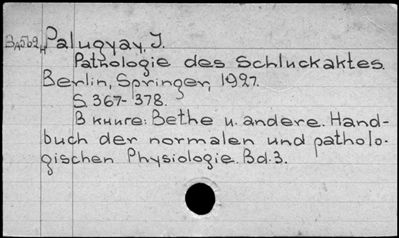 Palugyay, J.
Pathologie des Schluckaktes.
Berlin, Springer, 1927.
S. 367-378.
В книге: Bethe u. andere. Hand-
buch der normalen und patholo-
gischen Physiologie. Bd. 3.